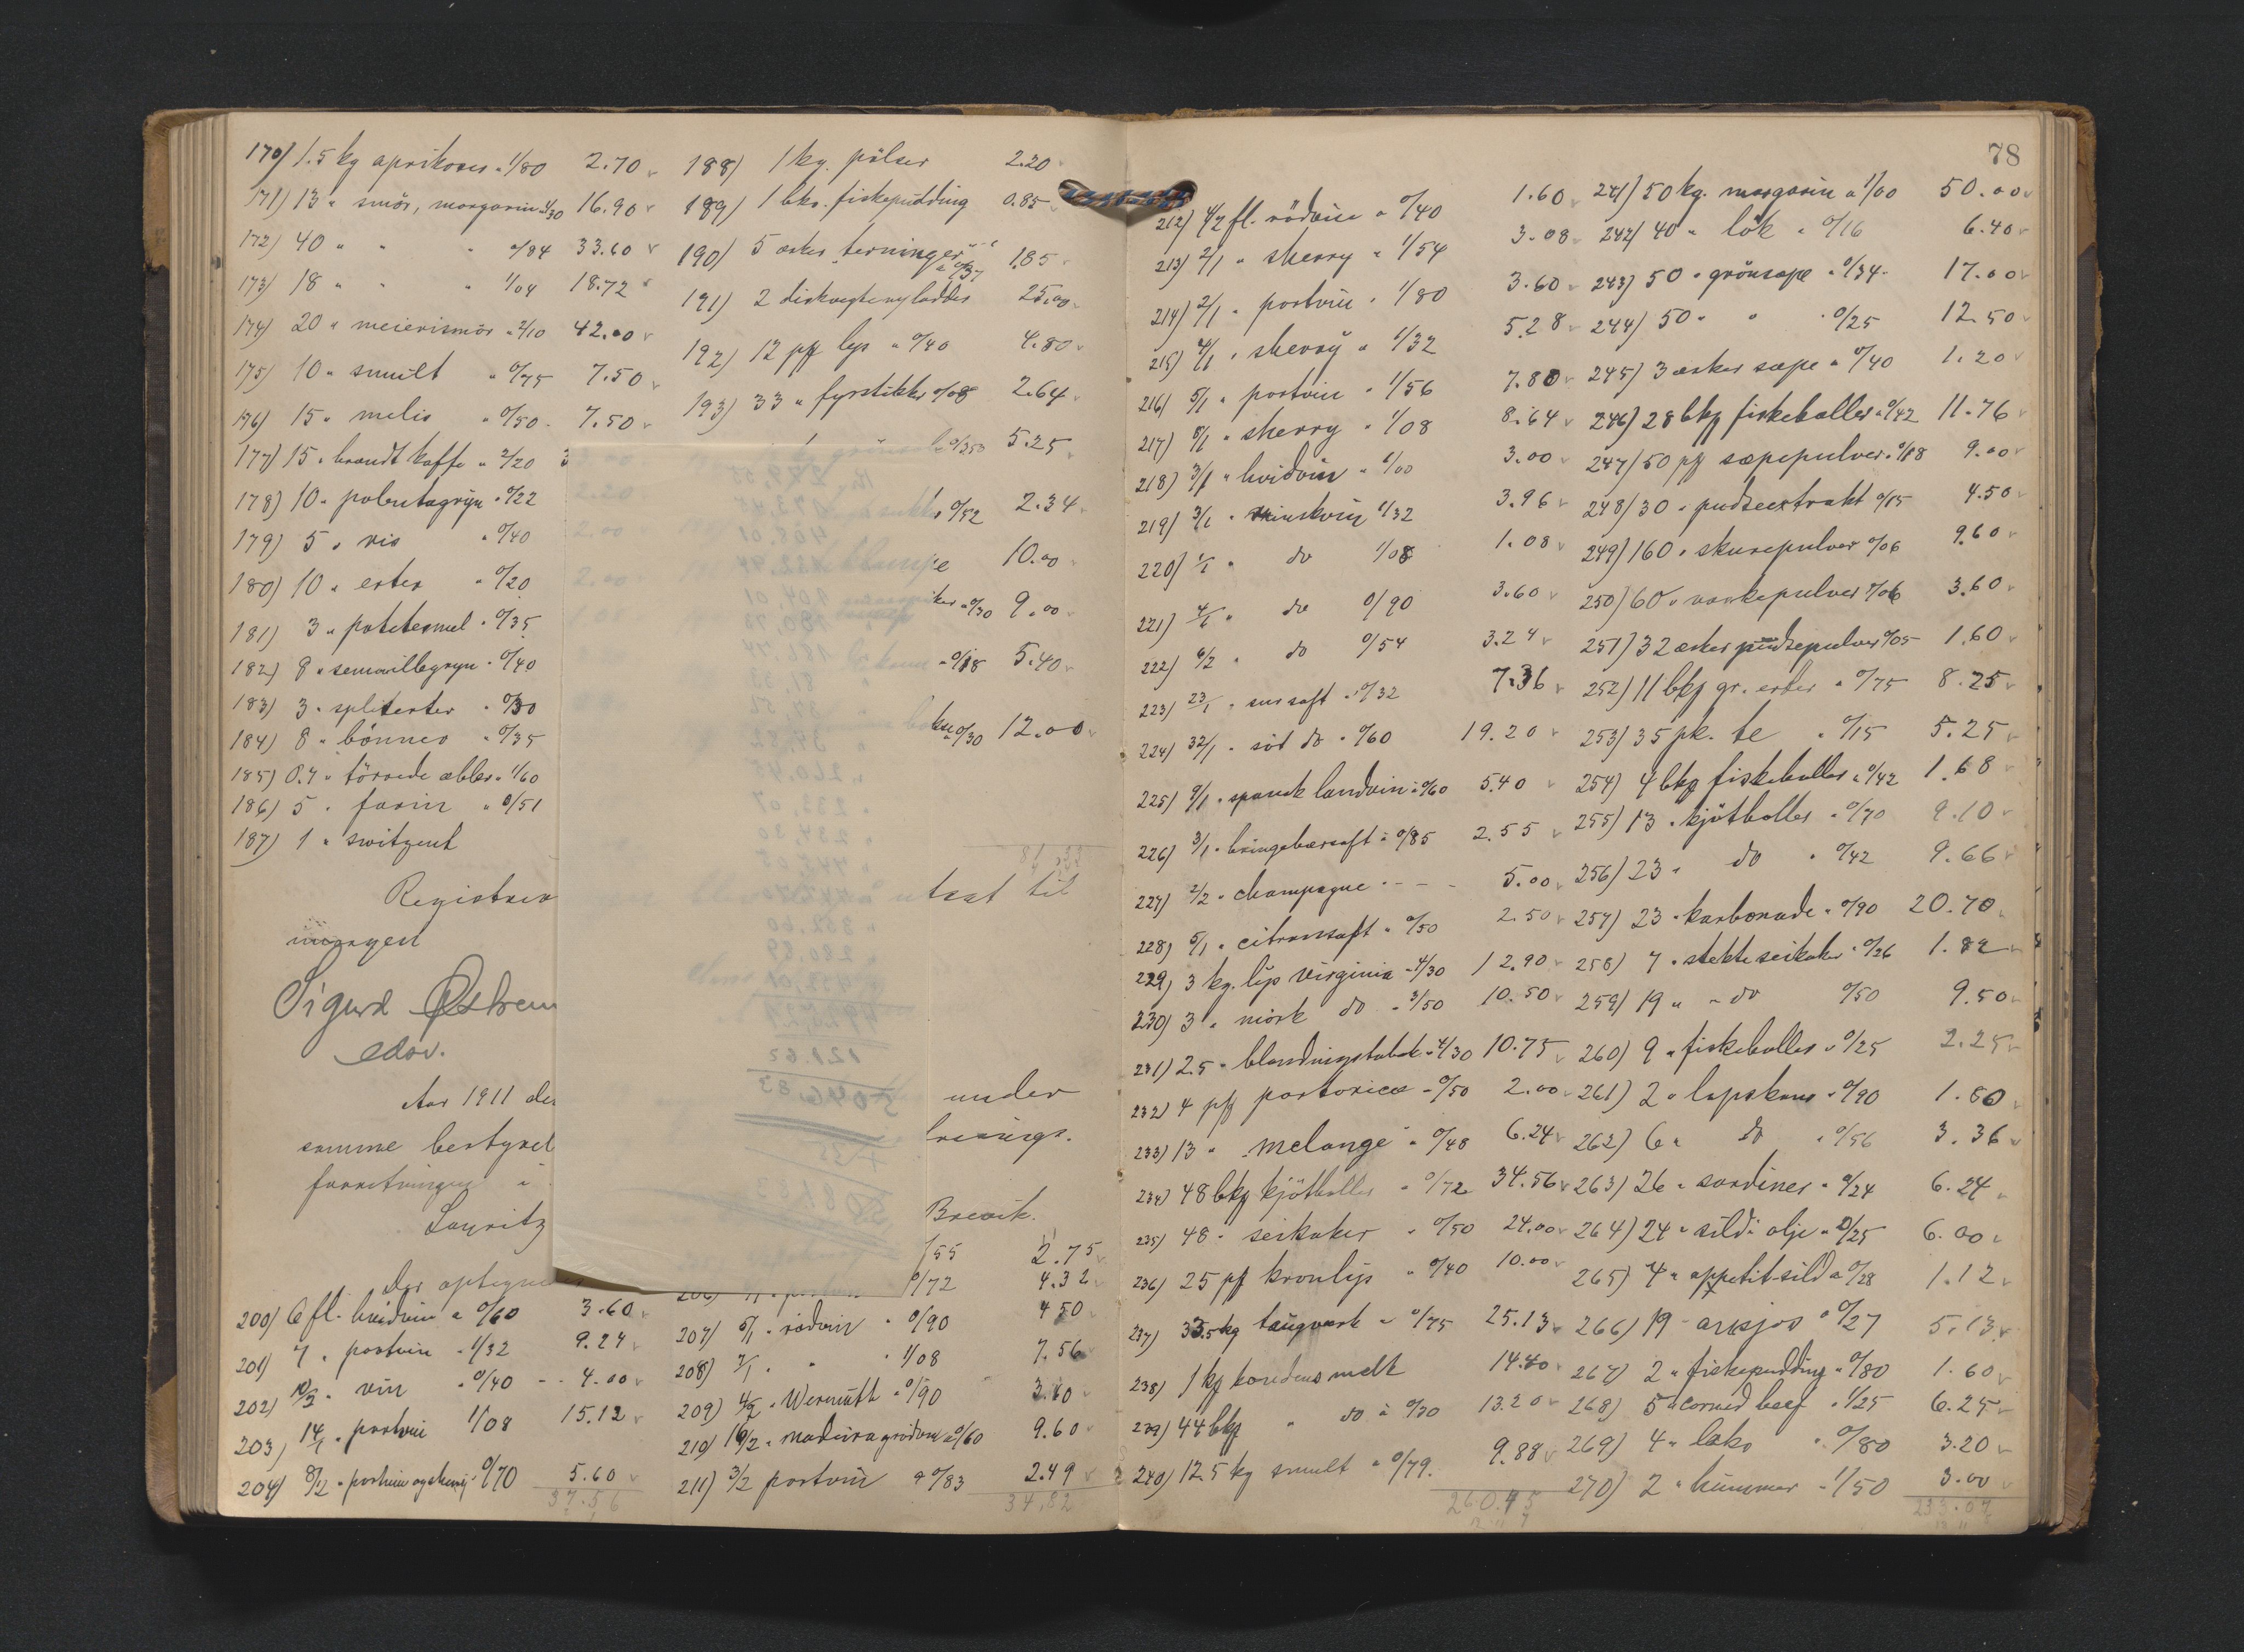 170) 1.5 kg aprikoser " 1/80 2.70
171) 13 " smör, margarin 1/30 16.90
172) 40 " " " 0/84 33.60
173) 18 " " " 1/04 18.72
174) 20 " meierismör " 2/10 42.00
175) 10 " smult " 0/75 7.50
176) 15 " melis " 0/50 7.50
177) 15 " brændt kaffe " 2/20 3
178) 10 " polentagryn " 0/22
179) 5 " ris " 0/40
180) 10 " erter " 0/20
181) 3 " potetesmel " 0/35
182) 8 " semouillegryn " 0/40
183) 3 " spliterter " 0/30
184) 8 " bönner " 0/35
185) 0.7 " törrede æbler " 1/60
186) 5 " farin " 0/51
187) 1 " switzent
Registrer
morgen
Sigurd Østrem
edsv.
Aar 1911 den
samme bestyrel
forretningen i
Lauritz
Der optegne
200) 6 fl. hvidvin " 0/60 3.60
201) 7 " portvin " 1/32 9.24
202) 10/2 " vin " 0/40 4.00
203) 14/1 " portvin 1/08 15.12
204) 8/2 " portvin og sherry " 0/70 5.60
37.56
188) 1 kg. pölser 2.20
189) 1 bks. fiskepudding 0.85
190) 5 æsker terninger " 0/37 1.85
191) 2 diskvegtenyladder 25.00
192) 12 pk lys " 0/40 4.80
193) 33 " fyrstikker 0/08 2.64
5.25
0/52 2.34
10.00
0/30 9.00
" 0/18 5.40
0/30 12.00
tat til
under
Brevik.
/55 2.75
0/72 4.32
207) 5/1 " rödvin " 0/90 4.50
208) 7/1 " " " 1/08 7.56
209) 4/2 " Wermuth " 0/90 3.60
210) 16/2 " madeira grödvin " 0/60 9.60
211) 3/2 portvin " 0/83 2.49
34,82
78
212) 4/2 fl. rödvin " 0/40 1.60
213) 2/1 " sherry " 1/54 3.08
214) 2/1 " portvin " 1/80 3.60
215) 4/1 " sherry " 1/32 5.28
216) 5/1 " portvin " 1/56 7.80
217) 8/1 " sherry " 1/08 8.64
218) 3/1 " hvidvin " 1/00 3.00
219) 3/1 " rinskvin 1/32 3.96
220) 1/1 " do 1/08 1.08
221) 4/1 " do 0/90 3.60
222) 6/2 " do 0/54 3.24
223) 23/1 " sur saft " 0/32 7.36
224) 32/1 " söt do " 0/60 19.20
225) 9/1 " spansk landvin " 0/60 5.40
226) 3/1 " bringebærsaft " 0/85 2.55
227) 2/2 " champagne " - - 5.00
228) 5/1 " citronsaft " 0/50 2.50
229) 3 kg. lys virginia " 4/30 12.90
230) 3 " mörk do " 3/50 10.50
231) 2.5 " blandningstobak " 4/30 10.75
232) 4 pk portorico " 0/50 2.00
233) 13 " melange " 0/48 6.24
234) 48 bks kjötboller " 0/72 34.56
235) 48 " seikaker " 0/50 24.00
236) 25 pk kronlys " 0/40 10.00
237) 33.5 kg taugverk " 0/75 25.13
238) 1 ks kondens melk 14.40
239) 44 bks " do à 0/30 13.20
240) 12.5 kg smult " 0/79. 9.88
260.45
241) 50 kg. margarin " 1/00 50.00
242) 40 " lök " 0/16 6.40
243) 50 " grönsæpe " 0/34 17.00
244) 50 " " " 0/25 12.50
245) 3 æsker sæpe " 0/40 1.20
246) 28 bks fiskeboller " 0/42 11.76
247) 50 pk sæpepulver " 0/18 9.00
248) 30 " pudseextrakt 0/15 4.50
249) 160 " skurepulver 0/06 9.60
250) 60 " vaskepulver 0/06 3.60
251) 32 æsker pudsepulver 0/05 1.60
252) 11 bks gr. erter " 0/75 8.25
253) 35 pk. te " 0/15 5.25
254) 4 bks fiskeboller " 0/42 1.68
255) 13 " kjötboller " 0/70 9.10
256) 23 " do " 0/42 9.66
257) 23 " karbonade " 0/90 20.70
258) 7 " stekte seikaker " 0/26 1.82
259) 19 " " do 0/50 9.50
260) 9 " fiskeboller " 0/25 2.25
261) 2 " lapskaus " 0/90 1.80
262) 6 " do " 0/56 3.36
263) 26 " sardiner " 0/24 6.24
264) 24 " sild i olje " 0/25 6.00
265) 4 " appetit-sild " 0/28 1.12
266) 19 " ansjos " 0/27 5.13
267) 2 " fiskepudding " 0/80 1.60
268) 5 " corned beef " 1/25 6.25
269) 4 " laks " 0/80 3.20
270) 2 " hummer " 1/50 3.00
233.07